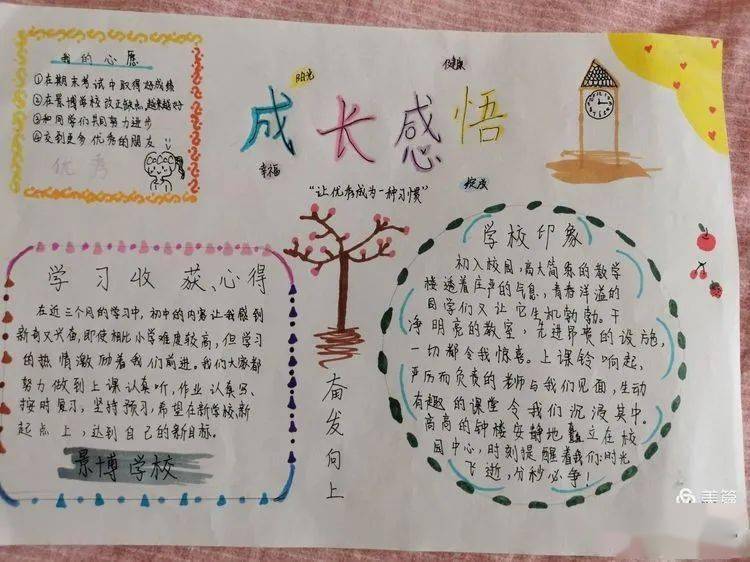 我的心愿
①在期末考试中取得好成绩
②在景博学校改正缺点,越来越好
③和同学们共同努力进步
④交到更多优秀的朋友
优秀
阳光
健康
成长感悟
幸福
绽放
“让优秀成为一种习惯”
学习收获心得
在近三个月的学习中,初中的内容让我感到
新奇又兴奋,即使相比小学难度较高,但学习
的热情激励着我们前进。我们大家都
努力做到上课认真听,作业认真写、
按时复习,坚持预习,希望在新学校,新
起点上,达到自己的新目标。
景博学校
奋发向上
学校印象
初入校园,高大简条的教学
楼透着庄严的气息,青春洋溢的
同学们又让它生机勃勃。干
净明亮的教室,先进昂贵的设施,
一切都令我惊喜。上课铃响起,
严厉而负责的老师与我们见面,生动
有趣的课堂令我们沉浸其中。
高高的钟楼安静地矗立在校
园中心,时刻提醒着我们:时光
飞逝,分秒必争!
美篇